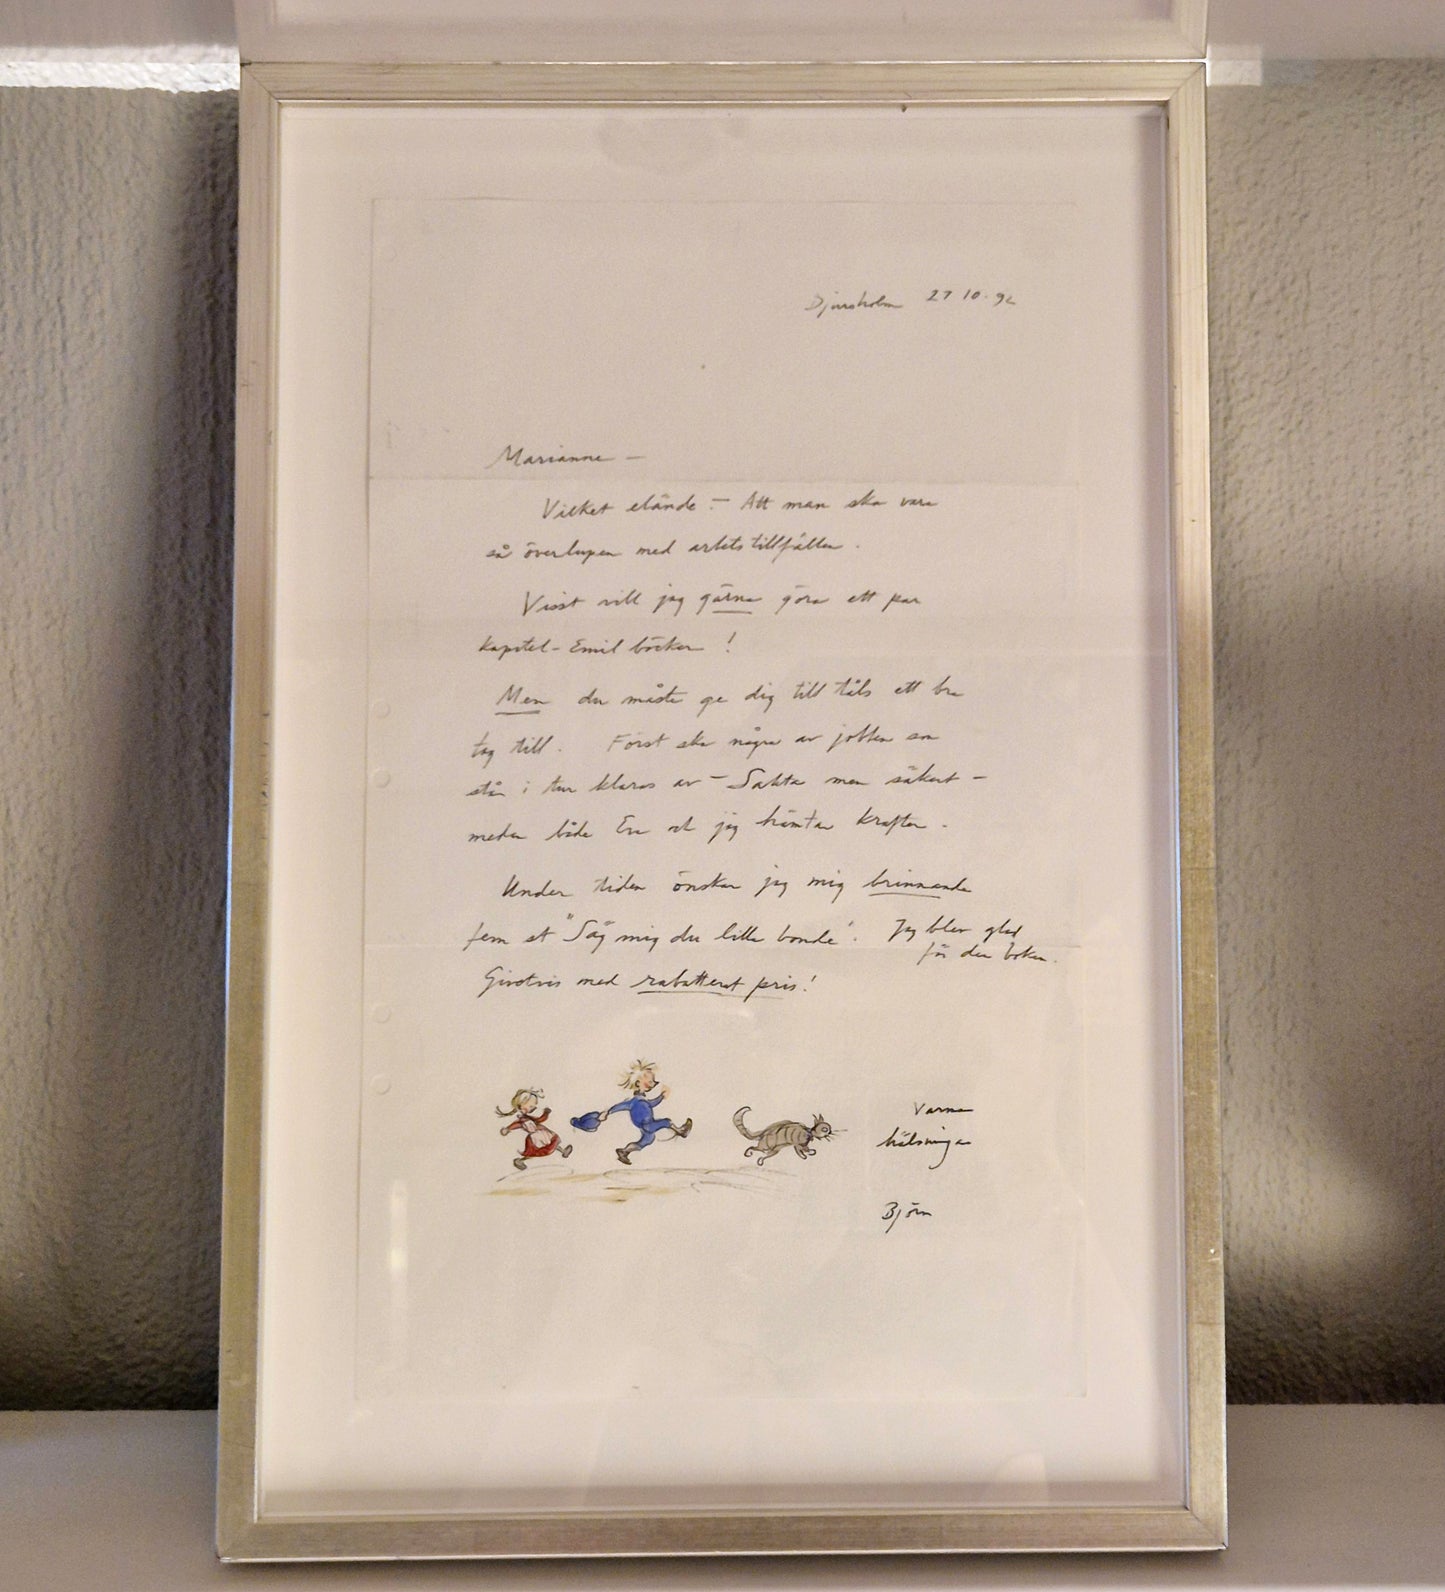 Djursholm 27 10.92
Marianne –
Vilket elände! – Att man ska vara
så överlupen med arbetstillfällen.
Visst vill jag gärna göra ett par
kapitel-Emil böcker!
Men du måste ge dig till tåls ett bra
tag till. Först ska några av jobben som
står i tur klaras av – Sakta men säkert –
medan både Eva och jag hämtar krafter.
Under tiden önskar jag mig brinnande
fem st "Säg mig du lilla bonde". Jag blev glad
för den boken.
Givetvis med rabatterat pris!
Varma
hälsningar
Björn